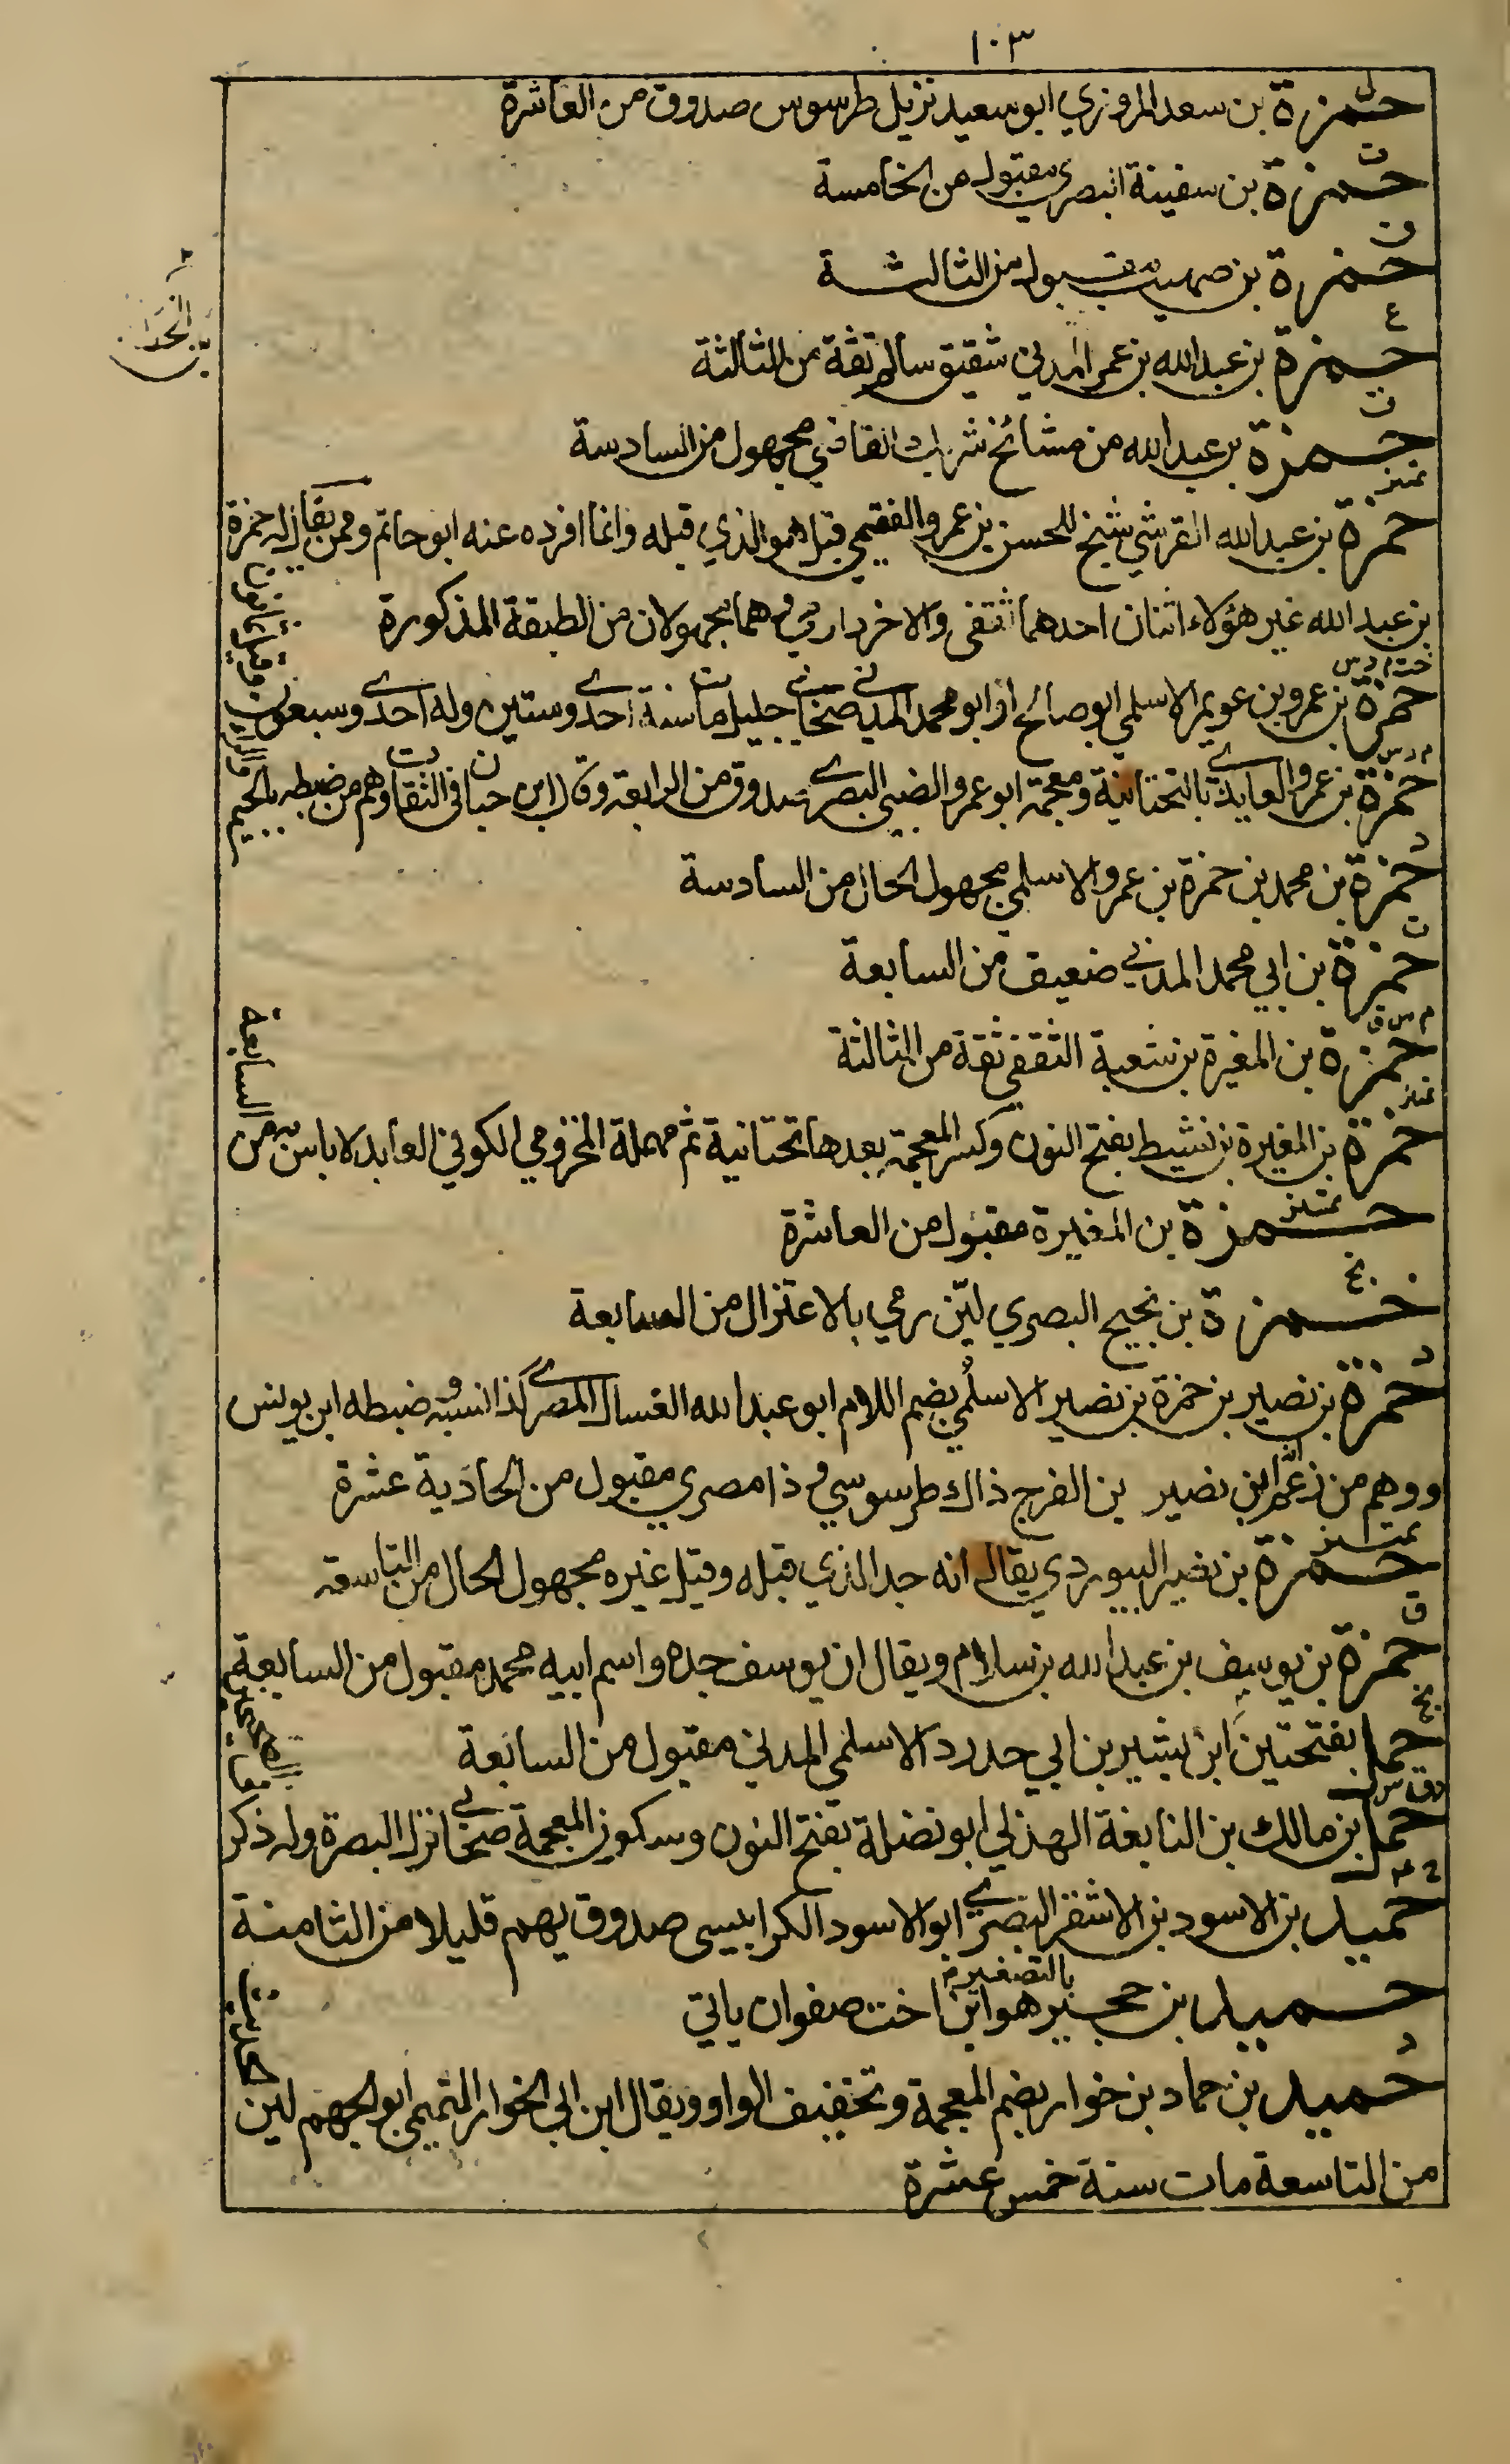 ١٠٣
د
حمزة بن سعد المروزي ابو سعيد نزيل طرسوس صدوق من العاشرة
ت
حمزة بن سفينة البصري مقبول من الخامسة
ق
حمزة بن صهيب مقبول من الثالثة
ع
حمزة بن عبد الله بن عمر المدني شقيق سالم ثقة من الثالثة
ت
حمزة بن عبد الله من مشائخ شريك القاضي مجهول من السادسة
تمييز
حمزة بن عبد الله القرشي شيخ للحسن بن عمرو الفقيمي قيل هو الذي قبله وانما افرده عنه ابو حاتم وممن يقال له حمزة
بن عبد الله غير هؤلاء اثنان احدهما ثقفى والاخر دارمي وهما مجهولان من الطبقة المذكورة
خت م د س
حمزة بن عمرو بن عويمر الاسلمي ابو صالح او ابو محمد المدني صحابي جليل مات سنة احدى وستين وله احدى وسبعون وقيل ثمانون
م د س
حمزة بن عمرو العايذي بالتحتانية ومعجمة ابو عمرو الضبي البصري صدوق من الرابعة وذكره ابن حبان في الثقات وهم من ضبطه بالجيم والراء
د
حمزة بن محمد بن حمزة بن عمرو الاسلمي مجهول الحال من السادسة
ت
حمزة بن ابي محمد المدني ضعيف من السابعة
م س ق
حمزة بن المغيرة بن شعبة الثقفي ثقة من الثالثة
تمييز
حمزة بن المغيرة بن نشيط بفتح النون وكسر المعجمة بعدها تحتانية ثم مهملة المخزومي الكوفي العابد لا باس به من السابعة
تمييز
حمزة بن المغيرة مقبول من العاشرة
بخ
حمزة بن نجيح البصري لين رمي بالاعتزال من السابعة
د
حمزة بن نصير بن حمزة بن نصير الاسلمي بضم اللام ابو عبد الله العسال المصري كذا نسبه وضبطه ابن يونس
ووهم من زعم انه ابن نصير بن الفرج ذاك طرسوسي وذا مصري مقبول من الحادية عشرة
تمييز
حمزة بن نصير البيوردي يقال انه جد الذي قبله وقيل غيره مجهول الحال من التاسعة
ق
حمزة بن يوسف بن عبد الله بن سلام ويقال ان يوسف جده واسم ابيه محمد مقبول من السابعة
بخ
حمل بفتحتين ابن بشير بن ابي حدرد الاسلمي المدني مقبول من السابعة
د س ق
حمل بن مالك بن النابغة الهذلي ابو نضلة بفتح النون وسكون المعجمة صحابي نزل البصرة وله ذكر
خ ٤
حميد بن الاسود بن الاشقر البصري ابو الاسود الكرابيسى صدوق يهم قليلا من الثامنة
حميد بن حجير بالتصغير هو ابن اخت صفوان ياتي
د
حميد بن حماد بن خوار بضم المعجمة وتخفيف الواو ويقال ابن ابي الخوار التميمي ابو الجهم لين
من التاسعة مات سنة خمس عشرة